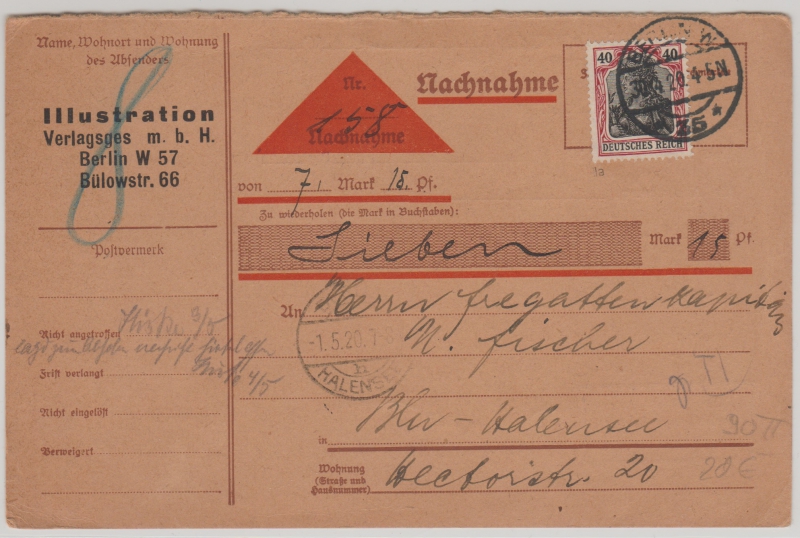 Name, Wohnort und Wohnung
des Absenders
Illustration
Verlagsges m. b. H.
Berlin W 57
Bülowstr. 66
Postvermerk
Nicht angetroffen
Frist verlangt
4/5
Nicht eingelöst
Verweigert
Nr.
158
Nachnahme
Nachnahme
40 40
DEUTSCHES REICH
BERLIN W.
20.4-5N
35 *
1a
von 7, Mark 15. Pf.
Zu wiederholen (die Mark in Buchstaben):
Sieben Mark 15 Pf.
An Herrn Fregattenkapitän
N. Fischer
-1.5.20.7-8
HALENSEE
Bln-Halensee
in
Wohnung
(Straße und
Hausnummer)
Hectorstr. 20
90 II
20 €